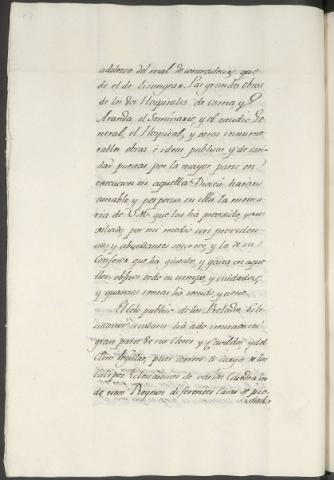 adolezco del mal de contradecir que
de el de lisongear. Las grandes obras
de los dos Hospitales de Osma y
Aranda, el Seminario, y el estudio Ge-
neral, el Hospicio, y otras innume-
rables obras e ideas publicas y de cari-
dad puestas por la mayor parte en
execucion en aquella Diocesi, haran
amable y perpetua en ella la memo-
ria de V.M. que las ha promovido y au-
xiliado por mi medio con providen-
cias, y abundantes socorros, y la de su
Confesor que ha gastado, y gasta en aque-
llos obgetos todo su tiempo, y cuidados,
y quantas rentas ha tenido, y tiene.
El celo publico de los Prelados
circular ha sido imitado en
gran parte de sus Cleros y Cavildos, y del
Clero regular, pues corren a cargo de los
Cuerpos Eclesiasticos de varias Catedrales
de estos Reynos diferentes Casas de pie-
dad